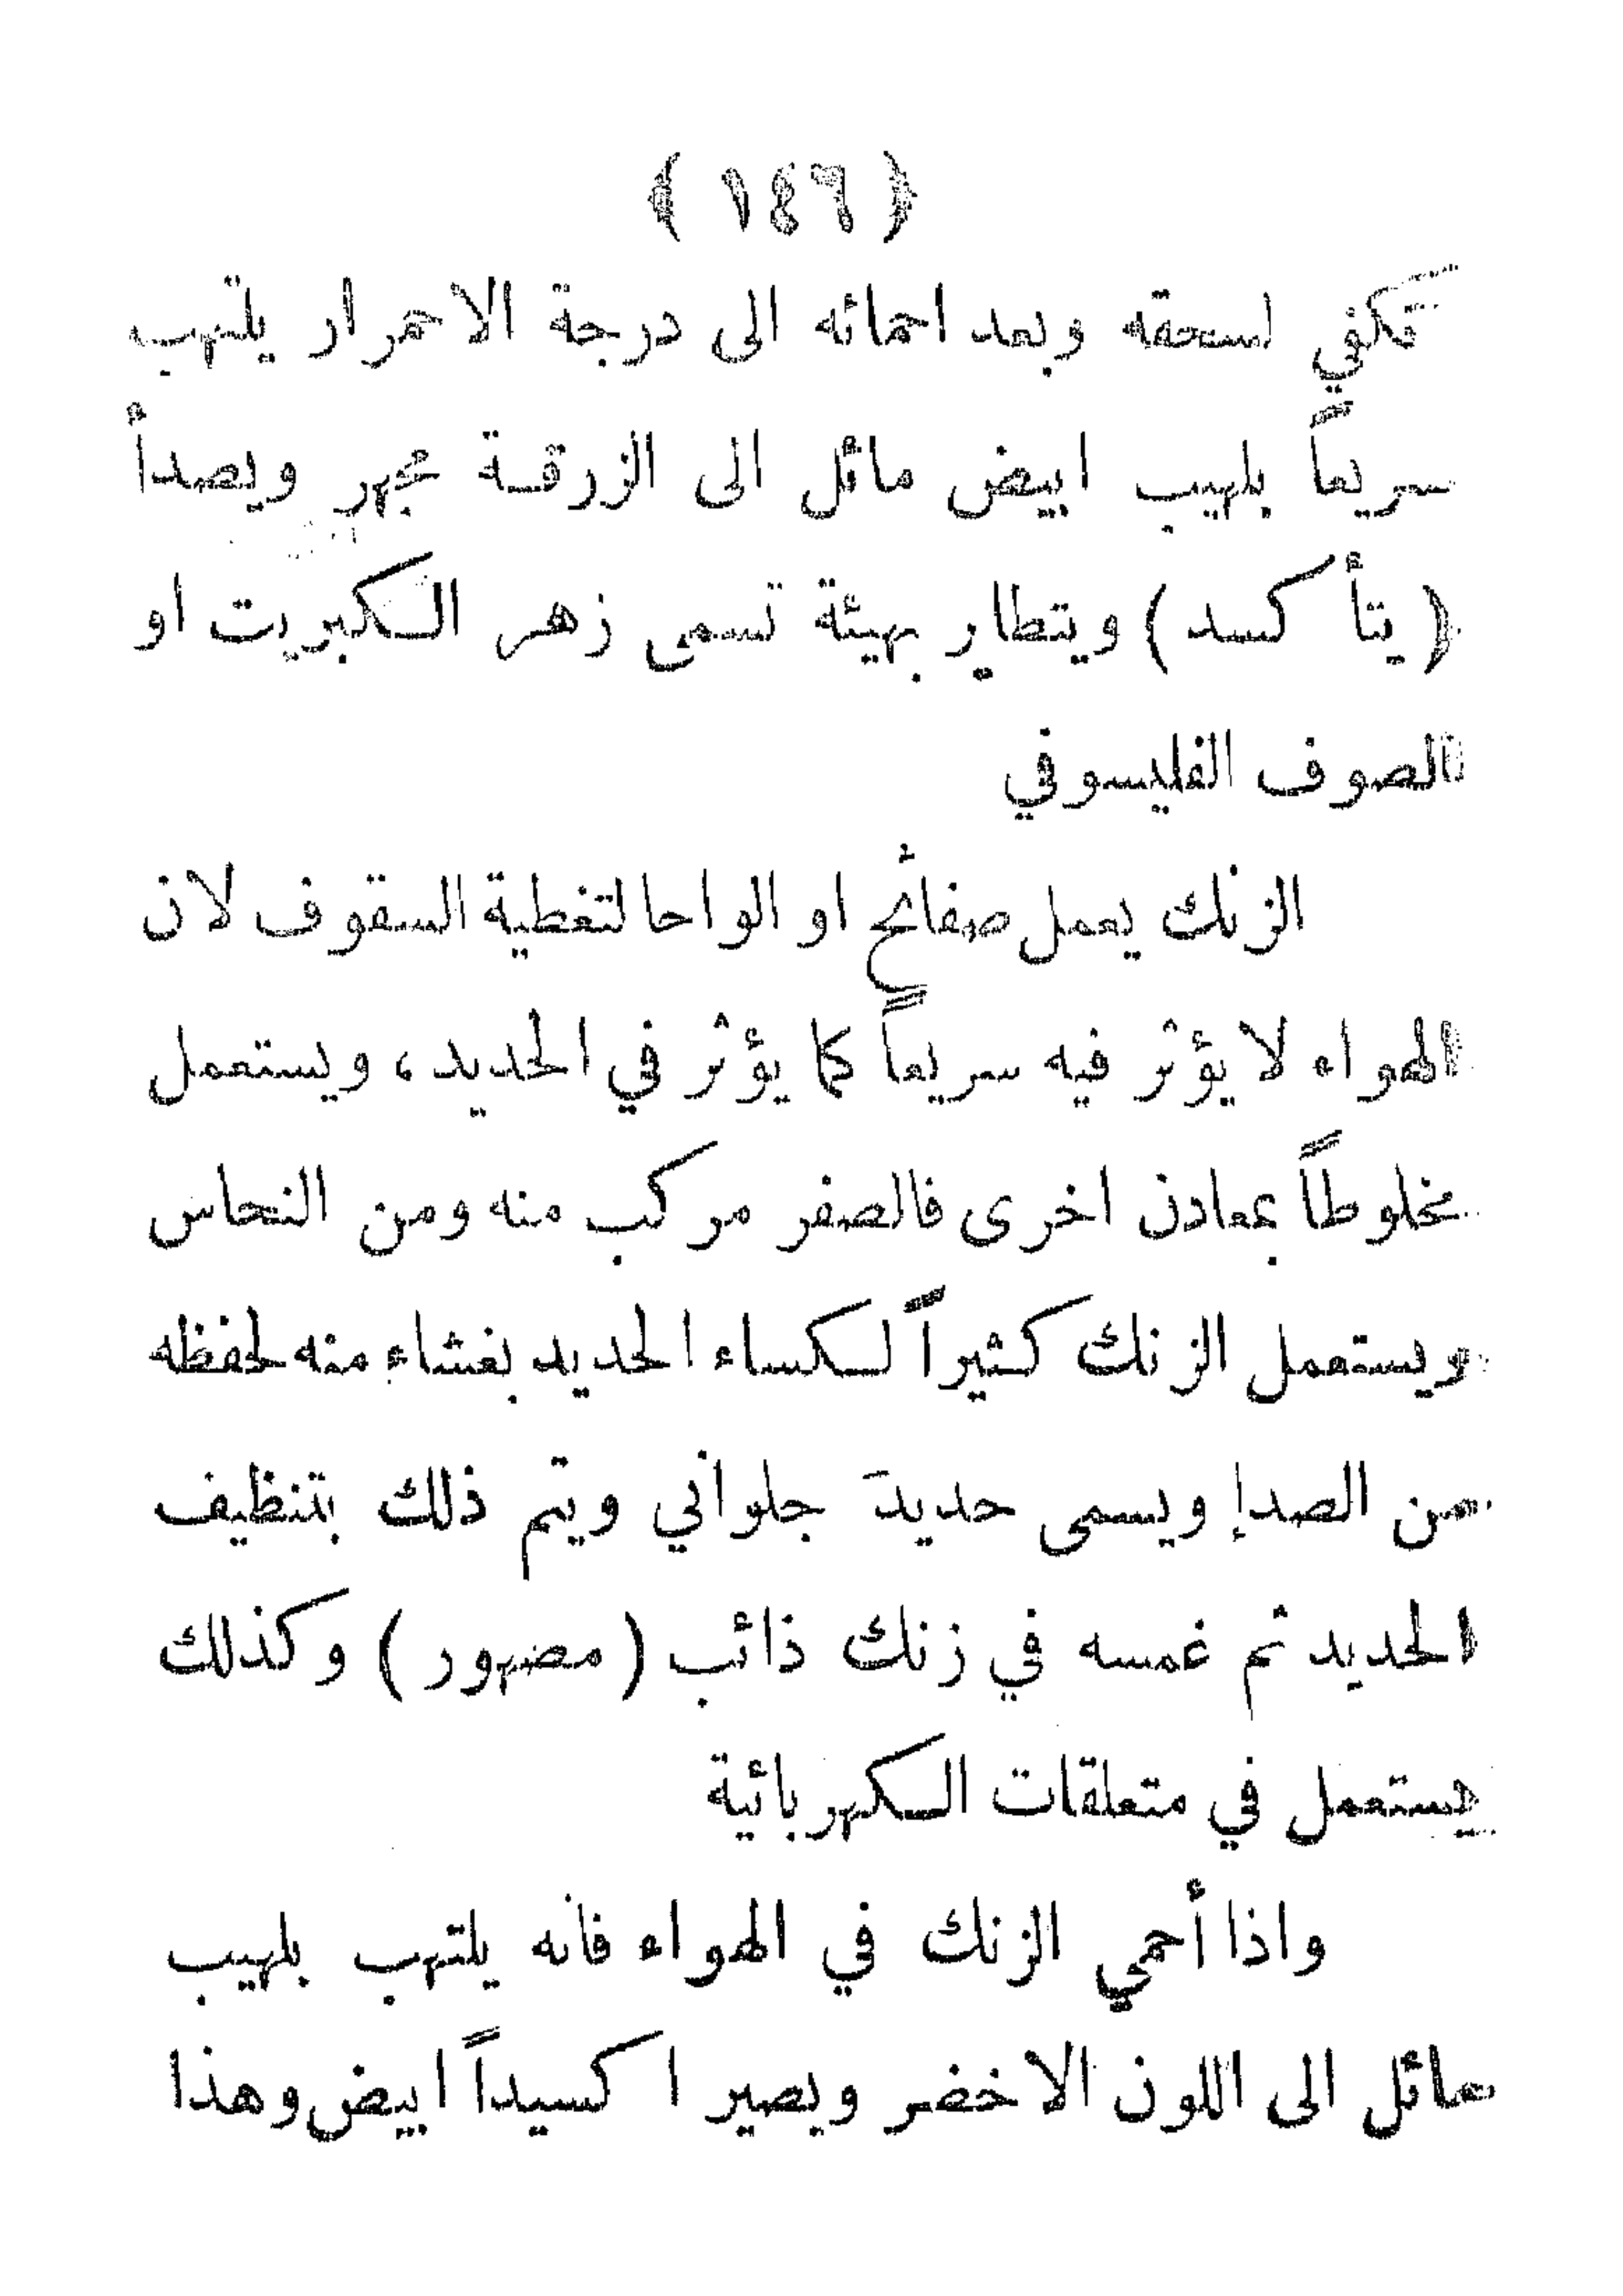 ﴿ ١٤٦ ﴾
تكفي لسحقه وبعد احمائه الى درجة الاحمرار يلتهب
سريعاً بلهيب ابيض مائل الى الزرقة مجهر ويصدأ
( يتأ كسد ) ويتطاير بهيئة تسمى زهر الكبريت او
الصوف الفليسوفي
الزنك يعمل صفائح او الواحا لتغطية السقوف لان
الهواء لا يؤثر فيه سريعاً كما يؤثر في الحديد ، ويستعمل
مخلوطاً بمعادن اخرى فالصفر مركب منه ومن النحاس
ويستعمل الزنك كثيراً لكساء الحديد بغشاء منه لحفظه
من الصدإ ويسمى حديد جلواني ويتم ذلك بتنظيف
الحديد ثم غمسه في زنك ذائب ( مصهور ) وكذلك
يستعمل في متعلقات الكهربائية
واذا أحمي الزنك في الهواء فانه يلتهب بلهيب
مائل الى اللون الاخضر ويصير ا كسيداً ابيض وهذا